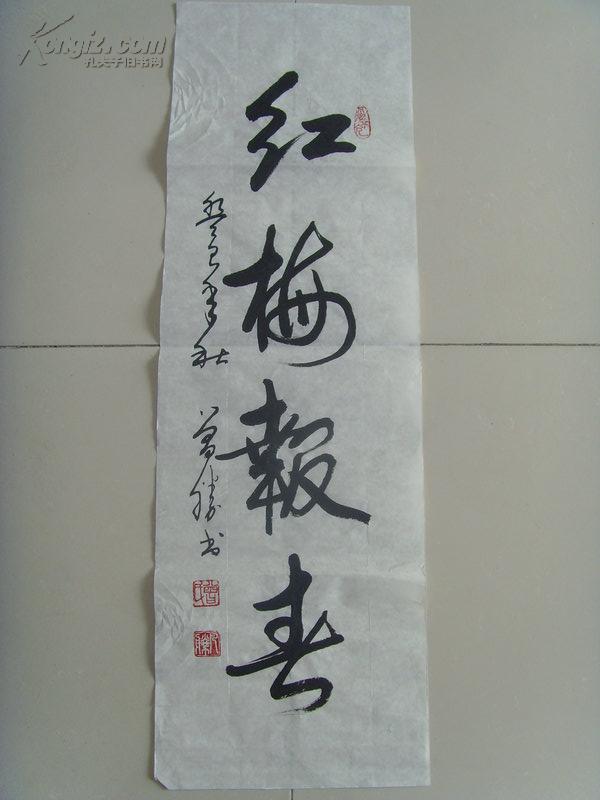 Kongfz.com
孔夫子旧书网
红梅報春
癸巳年秋 曾勝书